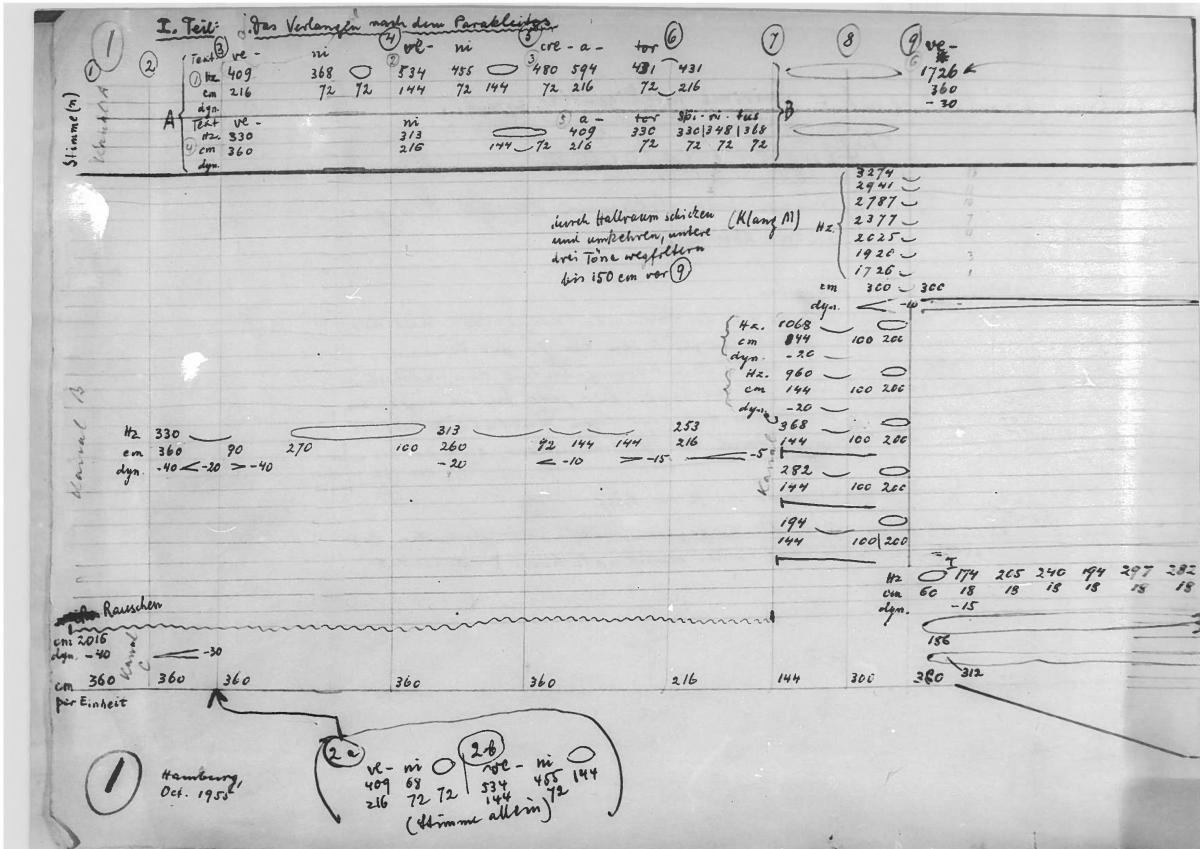 1
I. Teil: "Das Verlangen nach dem Parakleitos
1 2 3 4 5 6 7 8 9
Text ve- ni ve- ni cre- a- tor ve-
Hz 409 368 534 455 480 594 431 431 1726
cm 216 72 72 144 72 144 72 216 72 216 360
dyn. -30
A B
Stimme(n)
Text ve- ni a- tor Spi- ri- tus
Hz. 330 313 409 330 330 348 368
cm 360 216 144 72 216 72 72 72 72
dyn.
durch Hallraum schicken (Klang M)
und umkehren, untere
drei Töne wegfiltern
bis 150 cm vor 9
Hz.
3274
2941
2787
2377
2025
1920
1726
cm 300 300
dyn.
Hz. 1068
cm 844 100 200
dyn. -20
Hz. 960
cm 144 100 200
dyn. -20
368
144 100 200
282
144 100 200
194
144 100 200
Kanal B
Kanal C
Hz 330 313 253
cm 360 90 270 100 260 72 144 144 216
dyn. -40 < -20 > -40 -20 < -10 > -15 -5
Hz 174 205 240 194 297 282
cm 60 18 18 18 18 18 18
dyn. -15
156
312
Rauschen
cm 2016
dyn. -40 -30
Kanal C
cm 360 360 360 360 360 216 144 300 360
pür Einheit
2a 2b
ve- ni ve- ni
409 68 534 455 144
216 72 72 144 72
(Stimme allein)
1 Hamburg,
Oct. 1955